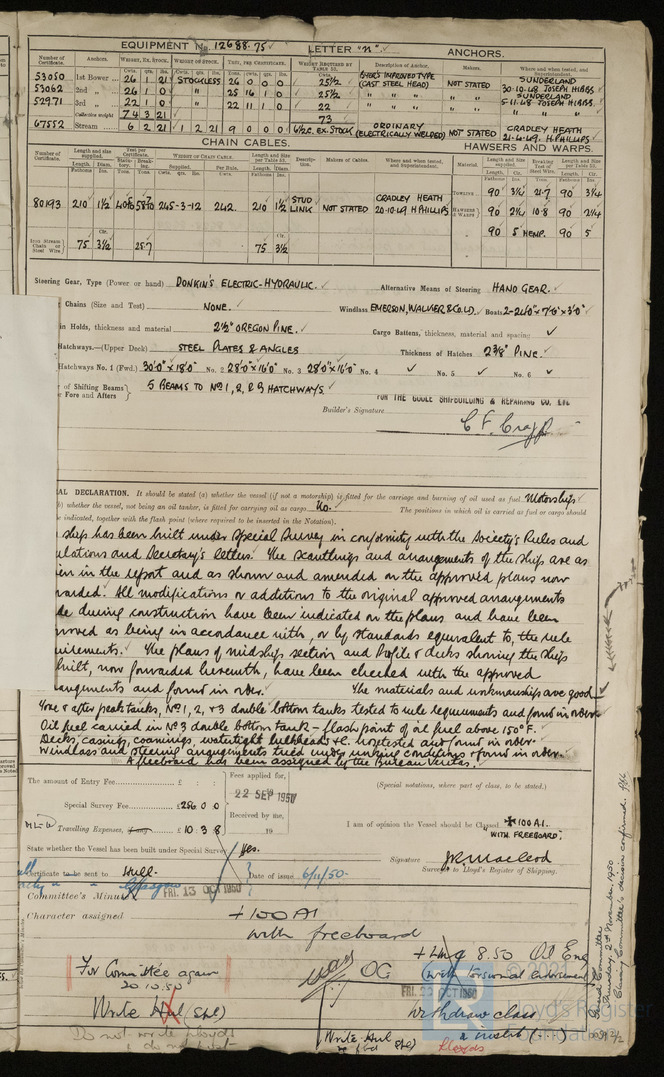 EQUIPMENT No. 12688.75 LETTER "n" ANCHORS.
Number of Certificate. Anchors. Weight, Ex. Stock. Weight of Stock. Test, per Certificate. Weight Required by Table 53. Description of Anchor. Makers. Where and when tested, and Superintendent.
53050 1st Bower 26 1 21 STOCKLESS 26 0 0 0 25½ BYER'S IMPROVED TYPE (CAST STEEL HEAD) NOT STATED SUNDERLAND
53062 2nd " 26 1 0 " 25 16 1 0 25½ " " " " " 30-10-48 JOSEPH HIBBS.
SUNDERLAND
52971 3rd " 22 1 0 " 22 11 1 0 22 " " " " " 5-11-48 JOSEPH HIBBS.
Collective weight 74 3 21 73
67552 Stream 6 2 21 1 2 21 9 0 0 0 6½ EX. STOCK ORDINARY (ELECTRICALLY WELDED) NOT STATED CRADLEY HEATH
21-4-49. H.PHILLIPS
CHAIN CABLES. HAWSERS AND WARPS.
80193 210 1½ 245-3-12 242. 210 1½ STUD LINK NOT STATED CRADLEY HEATH 20-10-49 H PHILLIPS
TOWLINE 90 3¼ 21.7 90 3¼
HAWSERS & WARPS 90 2¼ 10.8 90 2¼
90 5 HEMP. 90 5
Iron Stream Chain or Steel Wire 75 3½ 25.7 75 3½
Steering Gear, Type (Power or hand) DONKIN'S ELECTRIC-HYDRAULIC. Alternative Means of Steering HAND GEAR.
Chains (Size and Test) NONE. Windlass EMERSON, WALKER & Co LD. Boats 2-24'0" x 7'6" x 3'0"
in Holds, thickness and material 2½" OREGON PINE. Cargo Battens, thickness, material and spacing
Hatchways.—(Upper Deck) STEEL PLATES & ANGLES Thickness of Hatches 2⅜" PINE.
Hatchways No. 1 (Fwd.) 30'0" x 18'0" No. 2 28'0" x 16'0" No. 3 28'0" x 16'0" No. 4 No. 5 No. 6
of Shifting Beams or Fore and Afters 5 BEAMS TO Nº 1, 2, & 3 HATCHWAYS.
FOR THE GOOLE SHIPBUILDING & REPAIRING CO. LTD
Builder's Signature
AL DECLARATION. It should be stated (a) whether the vessel (if not a motorship) is fitted for the carriage and burning of oil used as fuel Motorship
) whether the vessel, not being an oil tanker, is fitted for carrying oil as cargo No. The positions in which oil is carried as fuel or cargo should
be indicated, together with the flash point (where required to be inserted in the Notation).
ship has been built under Special Survey in conformity with the Society's Rules and
ulations and Secretary's letters. The scantlings and arrangements of the ship are as
en in the report and as shown and amended on the approved plans now
warded. All modifications or additions to the original approved arrangements
de during construction have been indicated on the plans and have been
roved as being in accordance with, or by standards equivalent to, the rule
uirements. The plans of midship section and Profile & decks showing the ship
built, now forwarded herewith, have been checked with the approved
angements and found in order. The materials and workmanship are good
Fore & after peak tanks, Nº 1, 2, & 3 double bottom tanks tested to rule requirements and found in order
Oil fuel carried in Nº 3 double bottom tank – flash point of oil fuel above 150°F.
Decks, casing, coamings, watertight bulkheads &c. hosetested and found in order.
Windlass and steering arrangements tried under working conditions & found in order.
A freeboard has been assigned by the Bureau Veritas.
The amount of Entry Fee £ : :
Fees applied for,
22 SEP 1950
(Special notations, where part of class, to be stated.)
Special Survey Fee £256 0 0
Received by me, 19
I am of opinion the Vessel should be Classed +100 A1. WITH FREEBOARD.
Travelling Expenses, £10 : 3 : 8
State whether the Vessel has been built under Special Survey Yes.
Signature J R Macleod
Surveyor to Lloyd's Register of Shipping.
Certificate to be sent to Hull. Date of issue 6/11/50.
Glasgow
Committee's Minute FRI. 13 OCT 1950
Character assigned +100 A1
with freeboard
+ LMC 8.50 Oil Eng
(with torsional endorsement)
For Committee again
20.10.50
OG
FRI. 20 OCT 1950
Write Hul (Spl)
withdraw class
Do not write Lloyds
Write Hul
Lloyds
Thursday, 2nd November, 1950
Classing Committee's decision confirmed.
© Lloyd's Register Foundation